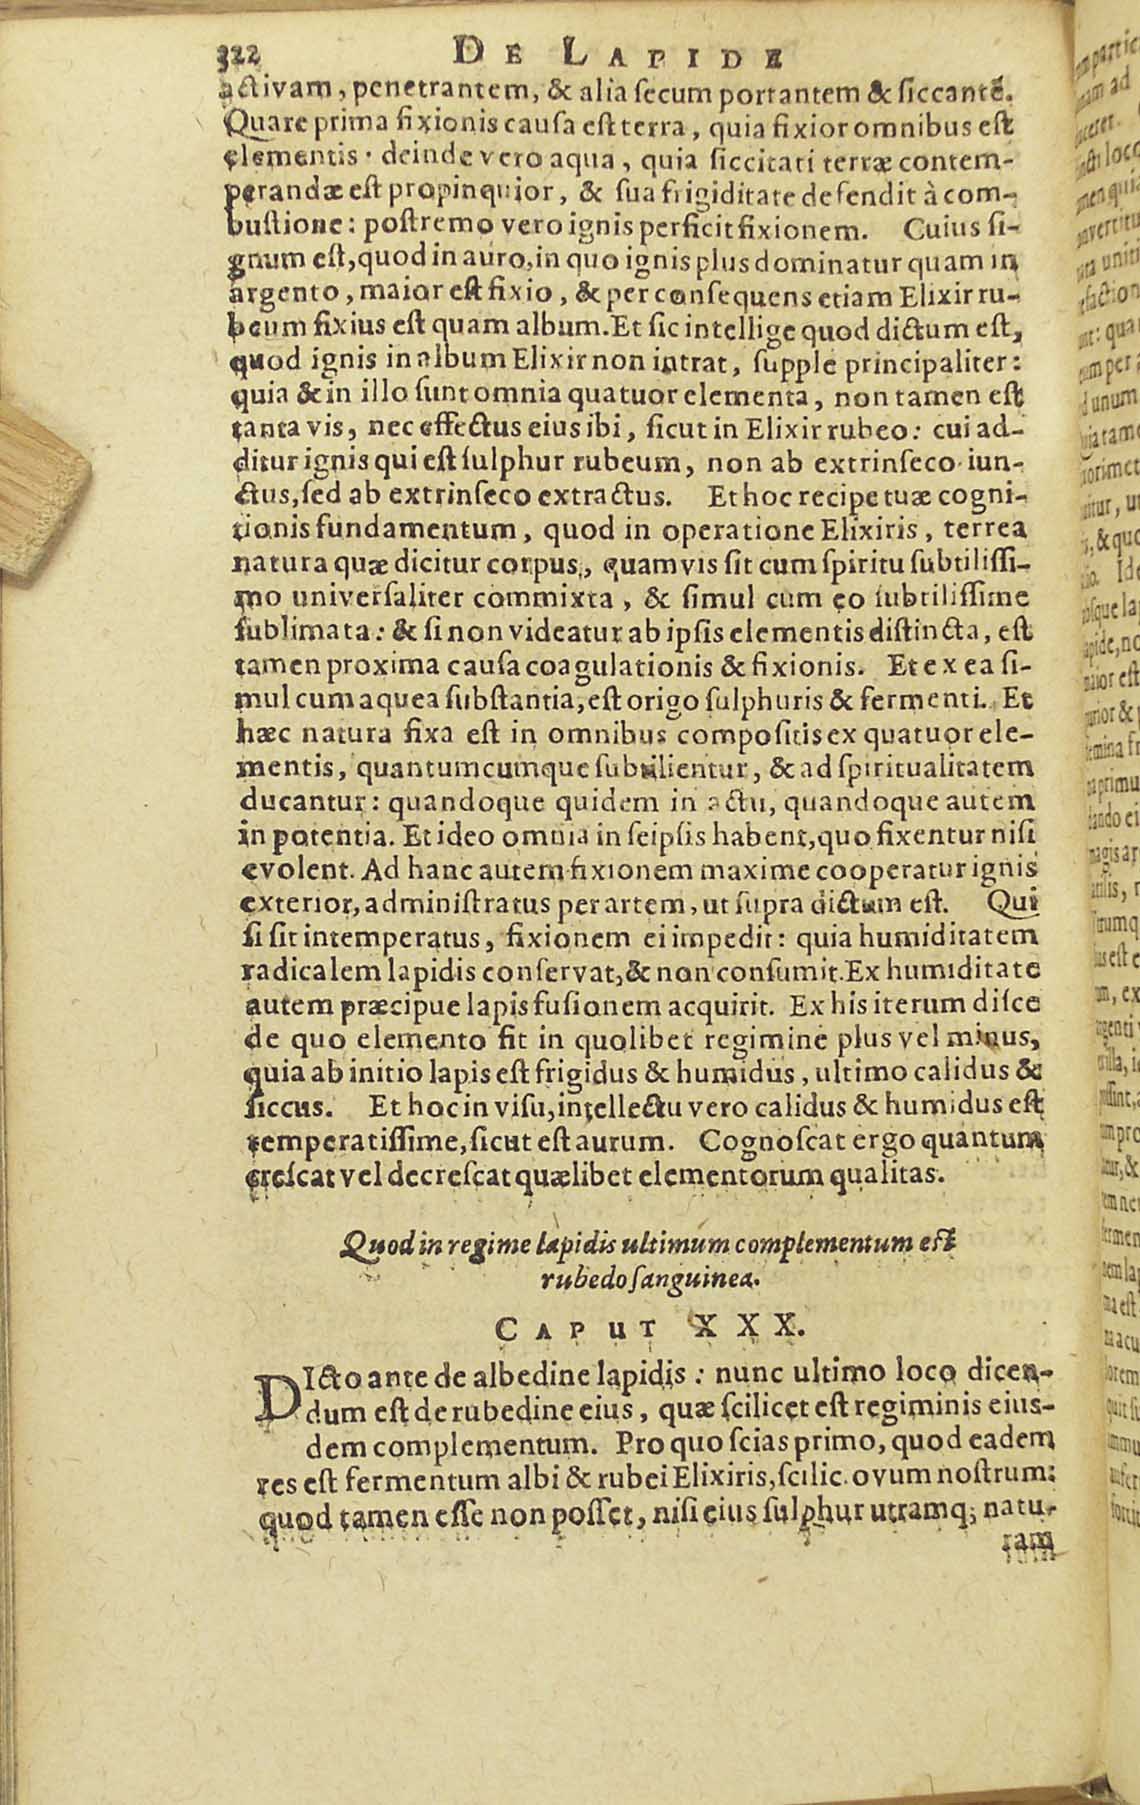 322 DE LAPIDE
activam, penetrantem, & alia ſecum portantem & ſiccantẽ.
Quare prima fixionis cauſa eſt terra, quia fixior omnibus eſt
elementis. deinde vero aqua, quia ſiccitati terræ contem-
perandæ eſt propinquior, & ſua frigiditate defendit à com-
buſtione: poſtremo vero ignis perficit fixionem. Cuius ſi-
gnum eſt, quod in auro, in quo ignis plus dominatur quam in
argento, maior eſt fixio, & per conſequens etiam Elixir ru-
beum fixius eſt quam album. Et ſic intellige quod dictum eſt,
quod ignis in album Elixir non intrat, ſupple principaliter:
quia & in illo ſunt omnia quatuor elementa, non tamen eſt
tanta vis, nec effectus eius ibi, ſicut in Elixir rubeo: cui ad-
ditur ignis qui eſt ſulphur rubeum, non ab extrinſeco iun-
ctus, ſed ab extrinſeco extractus. Et hoc recipe tuæ cogni-
tionis fundamentum, quod in operatione Elixiris, terrea
natura quæ dicitur corpus, quamvis ſit cum ſpiritu ſubtiliſſi-
mo univerſaliter commixta, & ſimul cum eo ſubtiliſſime
ſublimata: & ſi non videatur ab ipſis elementis diſtincta, eſt
tamen proxima cauſa coagulationis & fixionis. Et ex ea ſi-
mul cum aquea ſubſtantia, eſt origo ſulphuris & fermenti. Et
hæc natura fixa eſt in omnibus compoſitis ex quatuor ele-
mentis, quantumcumque ſubtilientur, & ad ſpiritualitatem
ducantur: quandoque quidem in actu, quandoque autem
in potentia. Et ideo omnia in ſeipſis habent, quo fixentur niſi
evolent. Ad hanc autem fixionem maxime cooperatur ignis
exterior, adminiſtratus per artem, ut ſupra dictum eſt. Qui
ſi ſit intemperatus, fixionem ei impedit: quia humiditatem
radicalem lapidis conſervat, & non conſumit. Ex humiditate
autem præcipue lapis fuſionem acquirit. Ex his iterum diſce
de quo elemento fit in quolibet regimine plus vel minus,
quia ab initio lapis eſt frigidus & humidus, ultimo calidus &
ſiccus. Et hoc in viſu, intellectu vero calidus & humidus eſt
temperatiſſime, ſicut eſt aurum. Cognoſcat ergo quantum
creſcat vel decreſcat quælibet elementorum qualitas.
Quod in regime lapidis ultimum complementum eſt
rubedo ſanguinea.
CAPUT XXX.
DIcto ante de albedine lapidis: nunc ultimo loco dicen-
dum eſt de rubedine eius, quæ ſcilicet eſt regiminis eius-
dem complementum. Pro quo ſcias primo, quod eadem
res eſt fermentum albi & rubei Elixiris, ſcilic. ovum noſtrum:
quod tamen eſſe non poſſet, niſi eius ſulphur utramq; natu-
ram